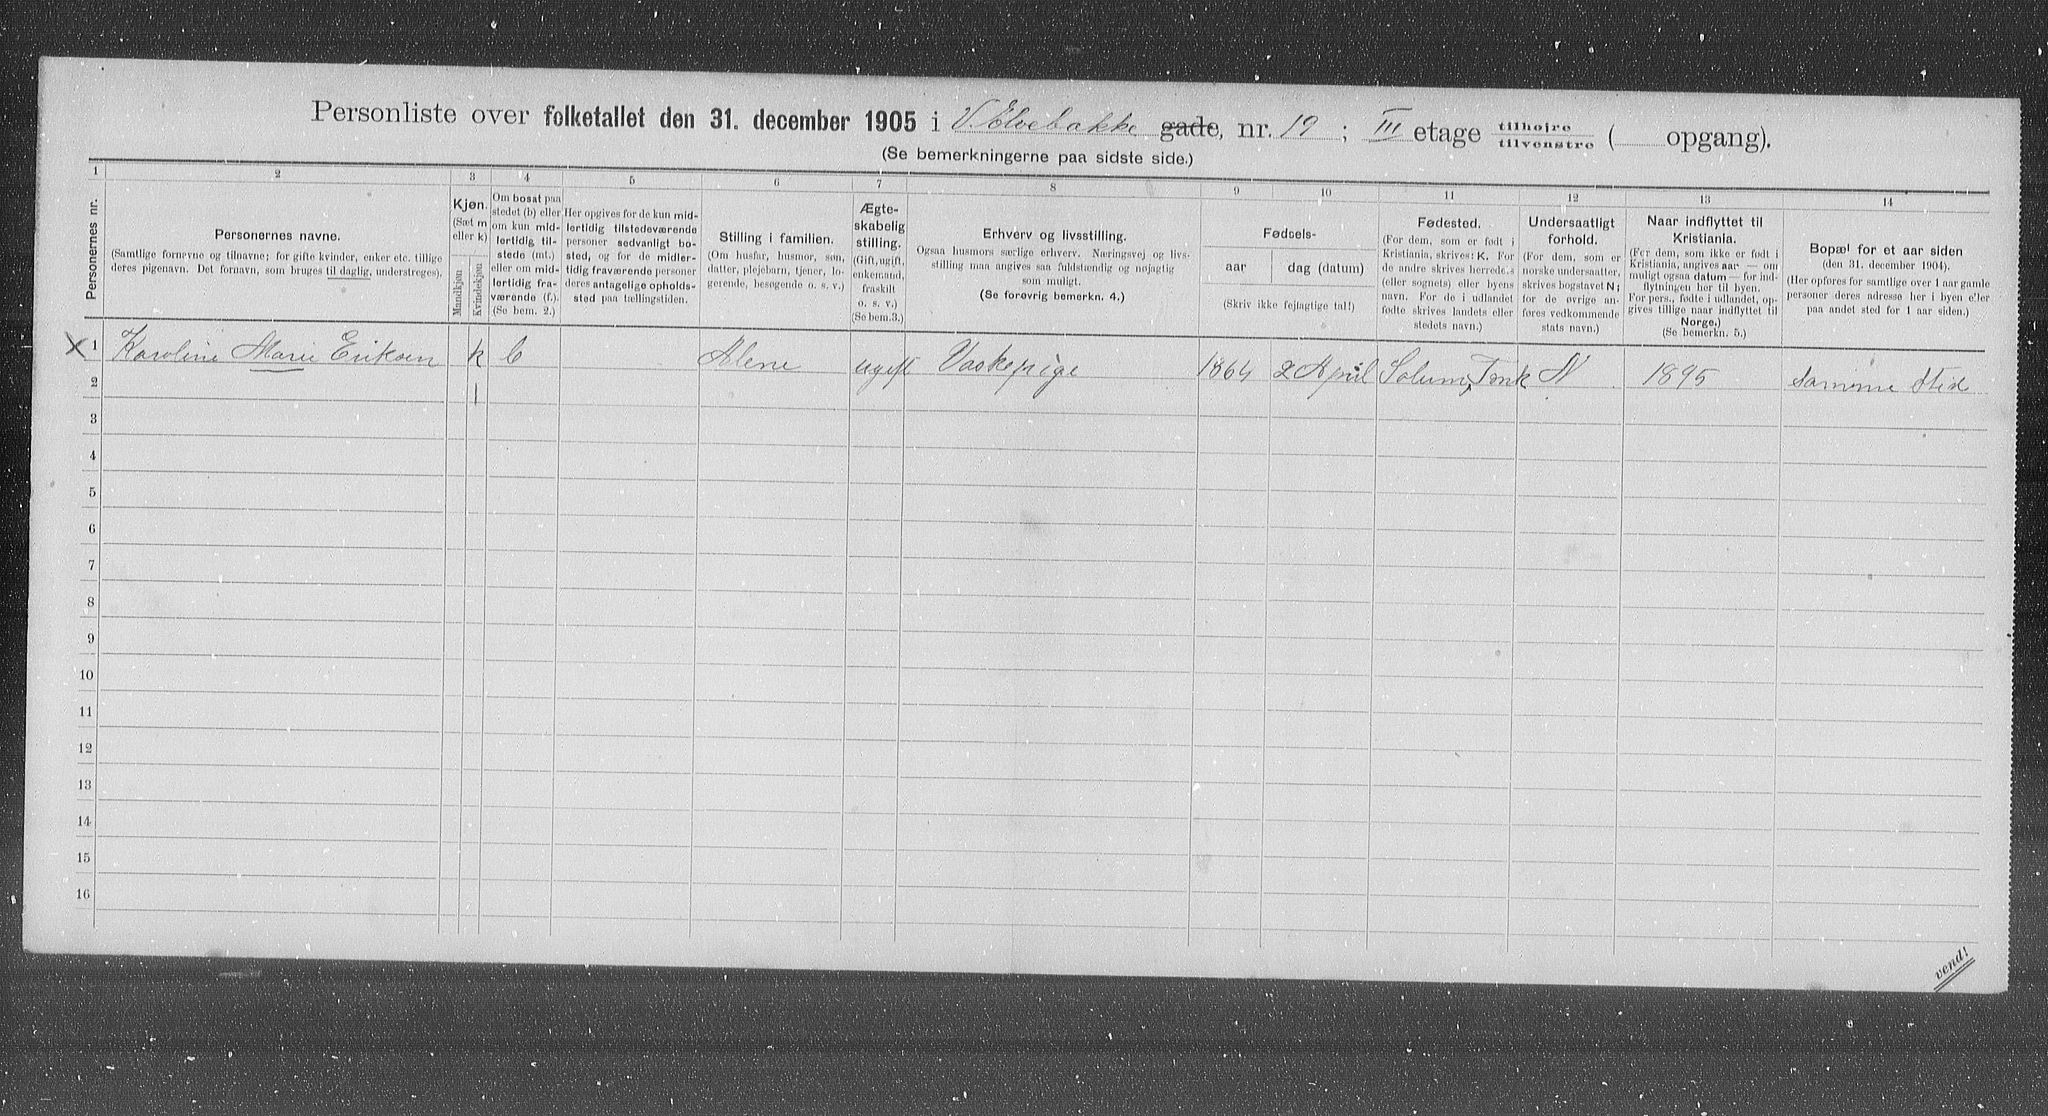 Personliste over folketallet den 31. december 1905 i V. Elvebakke gade, nr. 19 ; III etage tilhøjre tilvenstre ( opgang).
(Se bemerkningerne paa sidste side.)
1 2 3 4 5 6 7 8 9 10 11 12 13 14
Personernes nr.
Personernes navne.
(Samtlige fornevne og tilnavne; for gifte kvinder, enker etc. tillige
deres pigenavn. Det fornavn, som bruges til daglig, understreges).
Kjøn.
(Sæt m
eller k)
Mandkjøn
Kvindekjøn
Om bosat paa
stedet (b) eller
om kun mid-
lertidig til-
stede (mt.)
eller om mid-
lertidig fra-
værende (f.).
(Se bem. 2.)
Her opgives for de kun mid-
lertidig tilstedeværende
personer sedvanligt bo-
sted, og for de midler-
tidig fraværende personer
deres antagelige opholds-
sted paa tællingstiden.
Stilling i familien.
(Om husfar, husmor, søn,
datter, plejebarn, tjener, lo-
gerende, besøgende o. s. v.)
Ægte-
skabelig
stilling.
(Gift, ugift,
enkemand,
fraskilt
o. s. v.)
(Se bem. 3.)
Erhverv og livsstilling.
Ogsaa husmors særlige erhverv. Næringsvej og livs-
stilling maa angives saa fuldstændig og nøjagtig
som muligt.
(Se forøvrig bemerkn. 4.)
Fødsels-
aar
dag (datum)
(Skriv ikke fejlagtige tal!)
Fødested.
(For dem, som er født i
Kristiania, skrives: K. For
de andre skrives herredets
(eller sognets) eller byens
navn. For de i udlandet
fødte skrives landets eller
stedets navn.)
Undersaatligt
forhold.
(For dem, som er
norske undersaatter,
skrives bogstavet N;
for de øvrige an-
føres vedkommende
stats navn.)
Naar indflyttet til
Kristiania.
(For dem, som ikke er født i
Kristiania, angives aar — om
muligt ogsaa datum — for ind-
flytningen her til byen.
For pers., fødte i udlandet, op-
gives tillige naar indflyttet til
Norge.)
(Se bemerkn. 5.)
Bopæl for et aar siden
(den 31. december 1904).
(Her opføres for samtlige over 1 aar gamle
personer deres adresse her i byen eller
paa andet sted for 1 aar siden.)
X 1 Karoline Marie Eriksen k b Alene ugift Vaskepige 1864 2 April Solum, N 1895 samme Sted
2
3
4
5
6
7
8
9
10
11
12
13
14
15
16
vend!